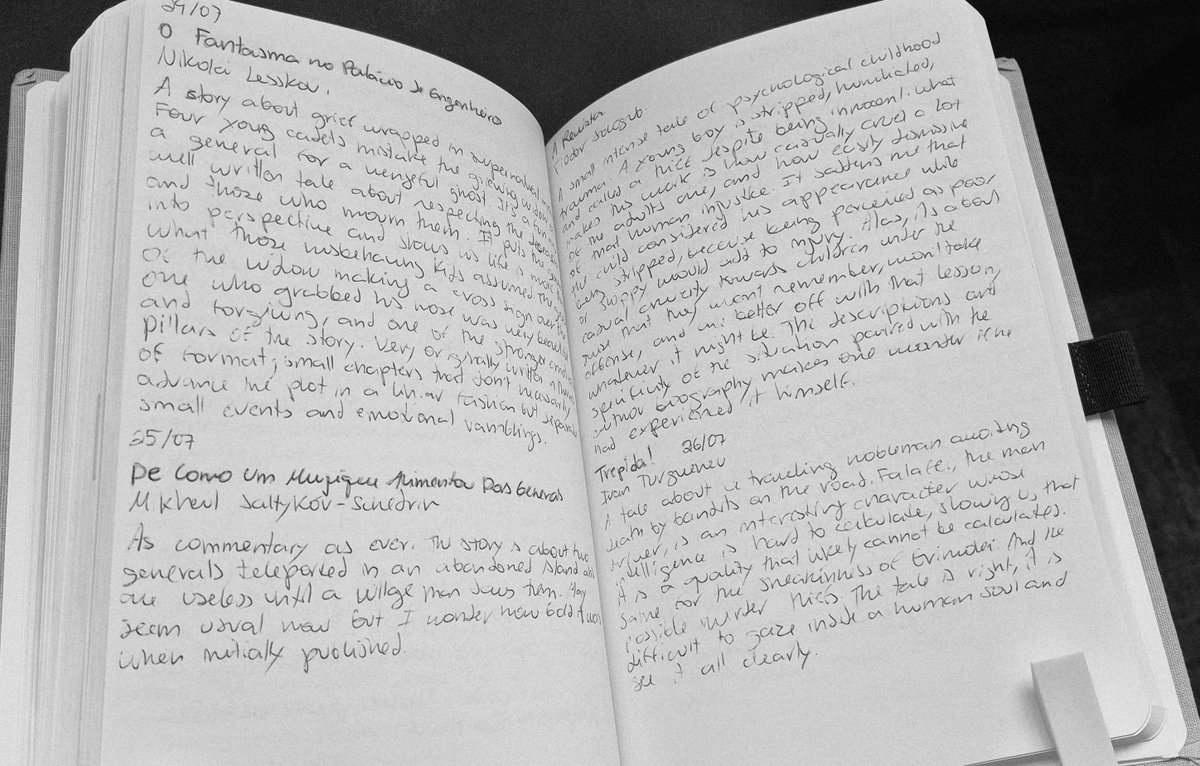 24/07
O Fantasma no Palácio de Engenheiro
Nikolai Lesskov.
A story about grief wrapped in supernatural
Four young cadets mistake the grieving widow of
a general for a vengeful ghost. It's a
well written tale about respecting the dead
and those who mourn them. It puts the
into perspective and shows us life is more
what those misbehaving kids assumed. The
of the widow making a cross sign over the
one who grabbed his nose was very beautiful
and forgiving, and one of the stronger emotional
pillars of the story. Very originally written in
of format; small chapters that don't necessarily
advance the plot in a linear fashion but separate
small events and emotional ramblings.
25/07
De Como Um Mujique Alimentou Dois Generais
Mikhail Saltykov-Schedrin
As commentary as ever. The story is about two
generals teleported in an abandoned island and
are useless until a village man saves them. May
seem usual now but I wonder how bold it was
when initially published.
A Revista
Fiodor Sologub.
A small intense tale of psychological childhood
trauma. A young boy is stripped, humiliated,
and called a thief despite being innocent. What
makes this work is how casually cruel a lot
of the adults are, and how easily dismissive
of small human injustice. It saddens me that
he could considered his appearance while
being stripped, because being perceived as poor
or sloppy would add to injury. Alas, it's about
casual cruelty towards children under the
guise that they won't remember, won't take
offense, and are better off with that lesson,
whatever it might be. The descriptions and
specificity of the situation paired with the
author biography makes one wonder if he
had experienced it himself.
Trepida! 26/07
Ivan Turguenev
A tale about a traveling nobleman awaiting
death by bandits on the road. Falafei, the man
driver, is an interesting character whose
intelligence is hard to calculate, showing us that
it is a quality that likely cannot be calculated.
Same for the sneakiness of the
possible murder thieves. The tale is right, it is
difficult to gaze inside a human soul and
see it all clearly.